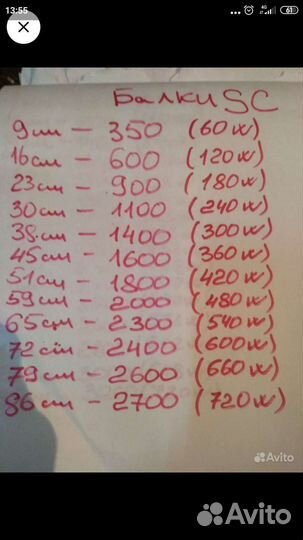 13:55
61
Балки SC
9см - 350 (60w)
16см - 600 (120w)
23см - 900 (180w)
30см - 1100 (240w)
38см - 1400 (300w)
45см - 1600 (360w)
51см - 1800 (420w)
59см - 2000 (480w)
65см - 2300 (540w)
72см - 2400 (600w)
79см - 2600 (660w)
86см - 2700 (720w)
Avito
Avito